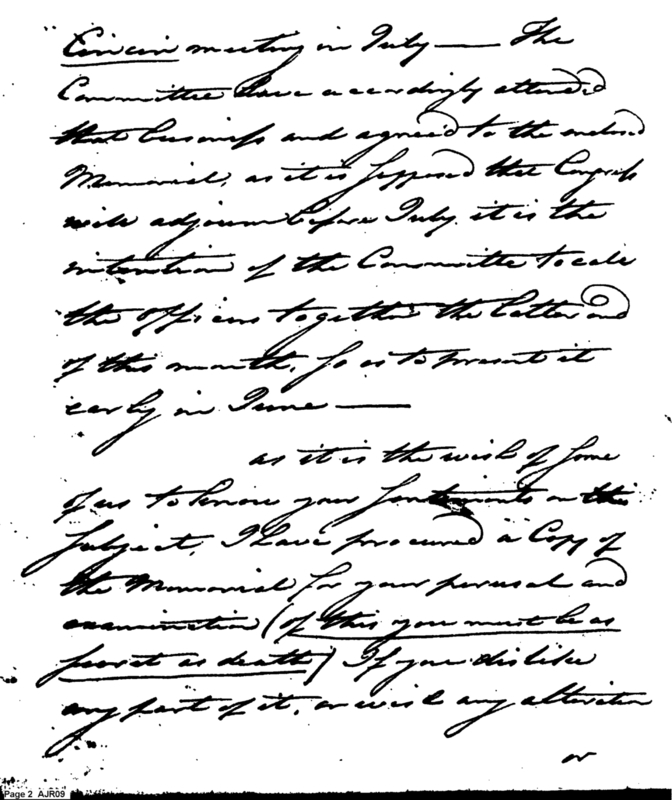 Cincin meeting in July — The
Committee have accordingly attended
that business and agreed to the enclosed
Memorial, as it is supposed that Congress
will adjourn before July it is the
intention of the Committee to call
the officers together the latter end
of this month, so as to present it
early in June —
as it is the wish of some
of us to know your sentiments on this
subject, I have procured a Copy of
the Memorial for your perusal and
examination (of this you must be as
secret as death) If you dislike
any part of it, or wish any alteration
or
Page 2 AJR09